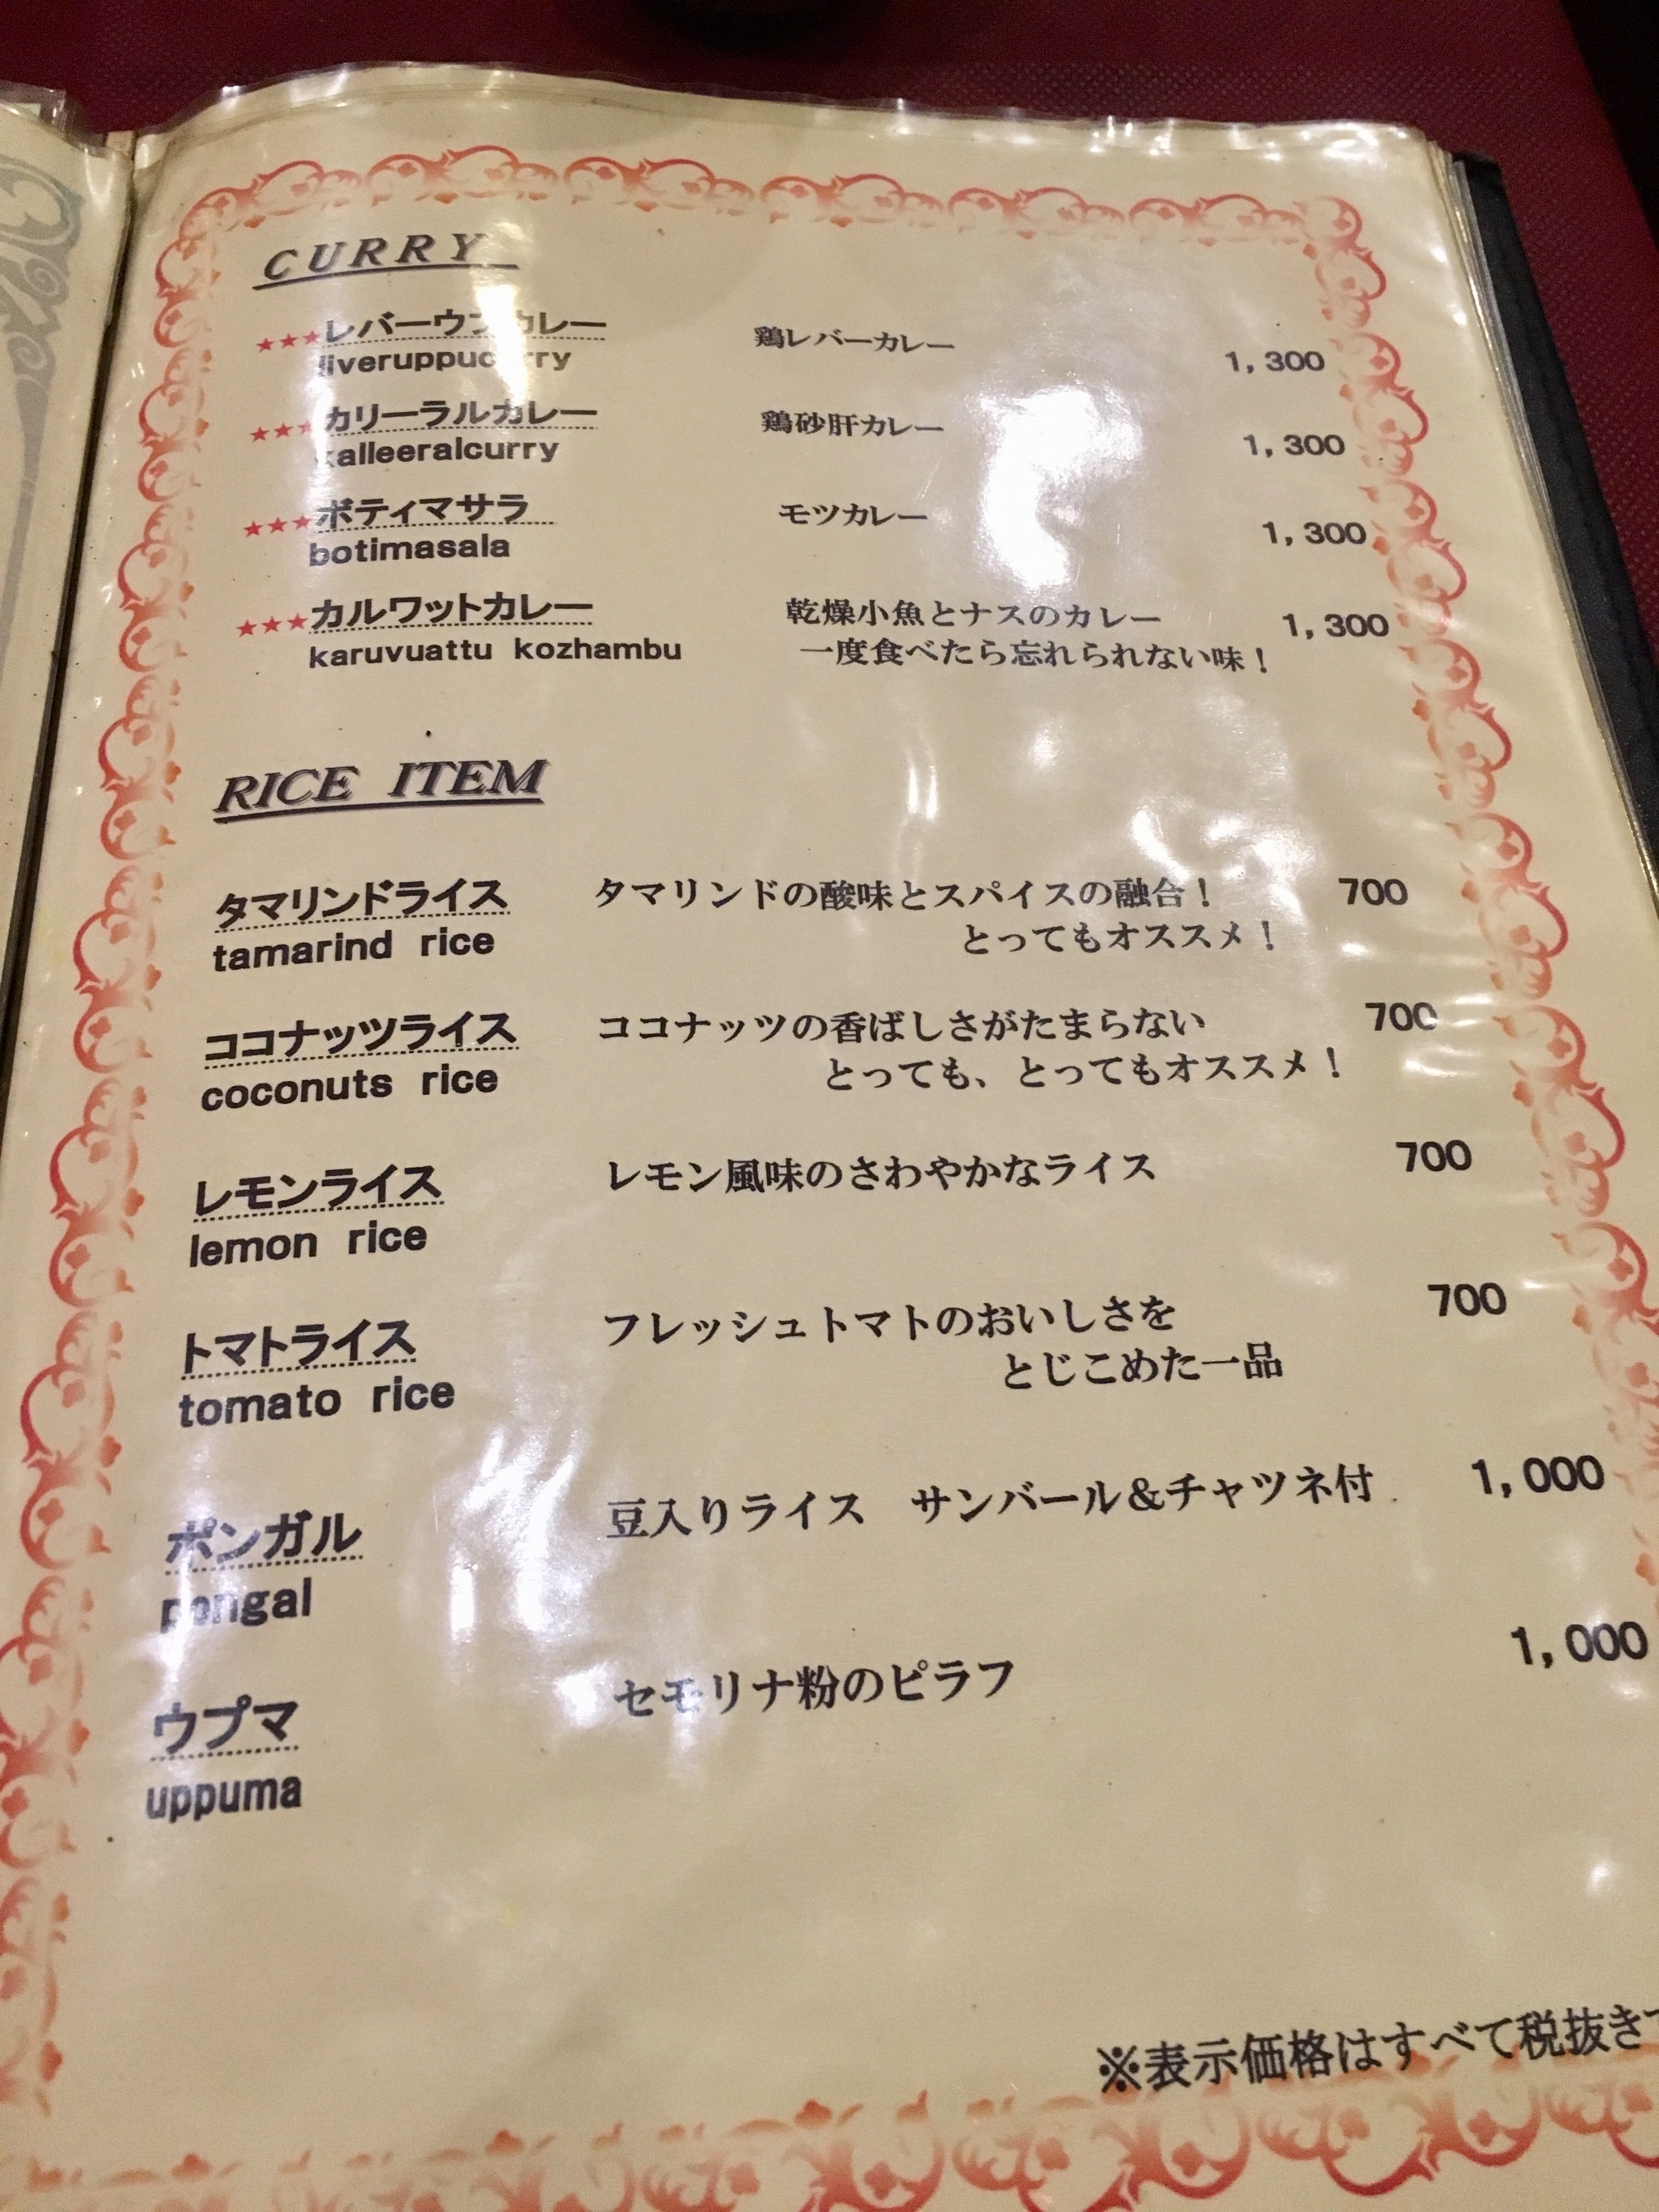 CURRY
★★★レバーウプカレー 鶏レバーカレー 1,300
liveruppucurry
★★★カリーラルカレー 鶏砂肝カレー 1,300
kalleeralcurry
★★★ボティマサラ モツカレー 1,300
botimasala
★★★カルワットカレー 乾燥小魚とナスのカレー 1,300
karuvuattu kozhambu 一度食べたら忘れられない味！
RICE ITEM
タマリンドライス タマリンドの酸味とスパイスの融合！ 700
tamarind rice とってもオススメ！
ココナッツライス ココナッツの香ばしさがたまらない 700
coconuts rice とっても、とってもオススメ！
レモンライス レモン風味のさわやかなライス 700
lemon rice
トマトライス フレッシュトマトのおいしさを 700
tomato rice とじこめた一品
ポンガル 豆入りライス サンバール＆チャツネ付 1,000
pongal
ウプマ セモリナ粉のピラフ 1,000
uppuma
※表示価格はすべて税抜き